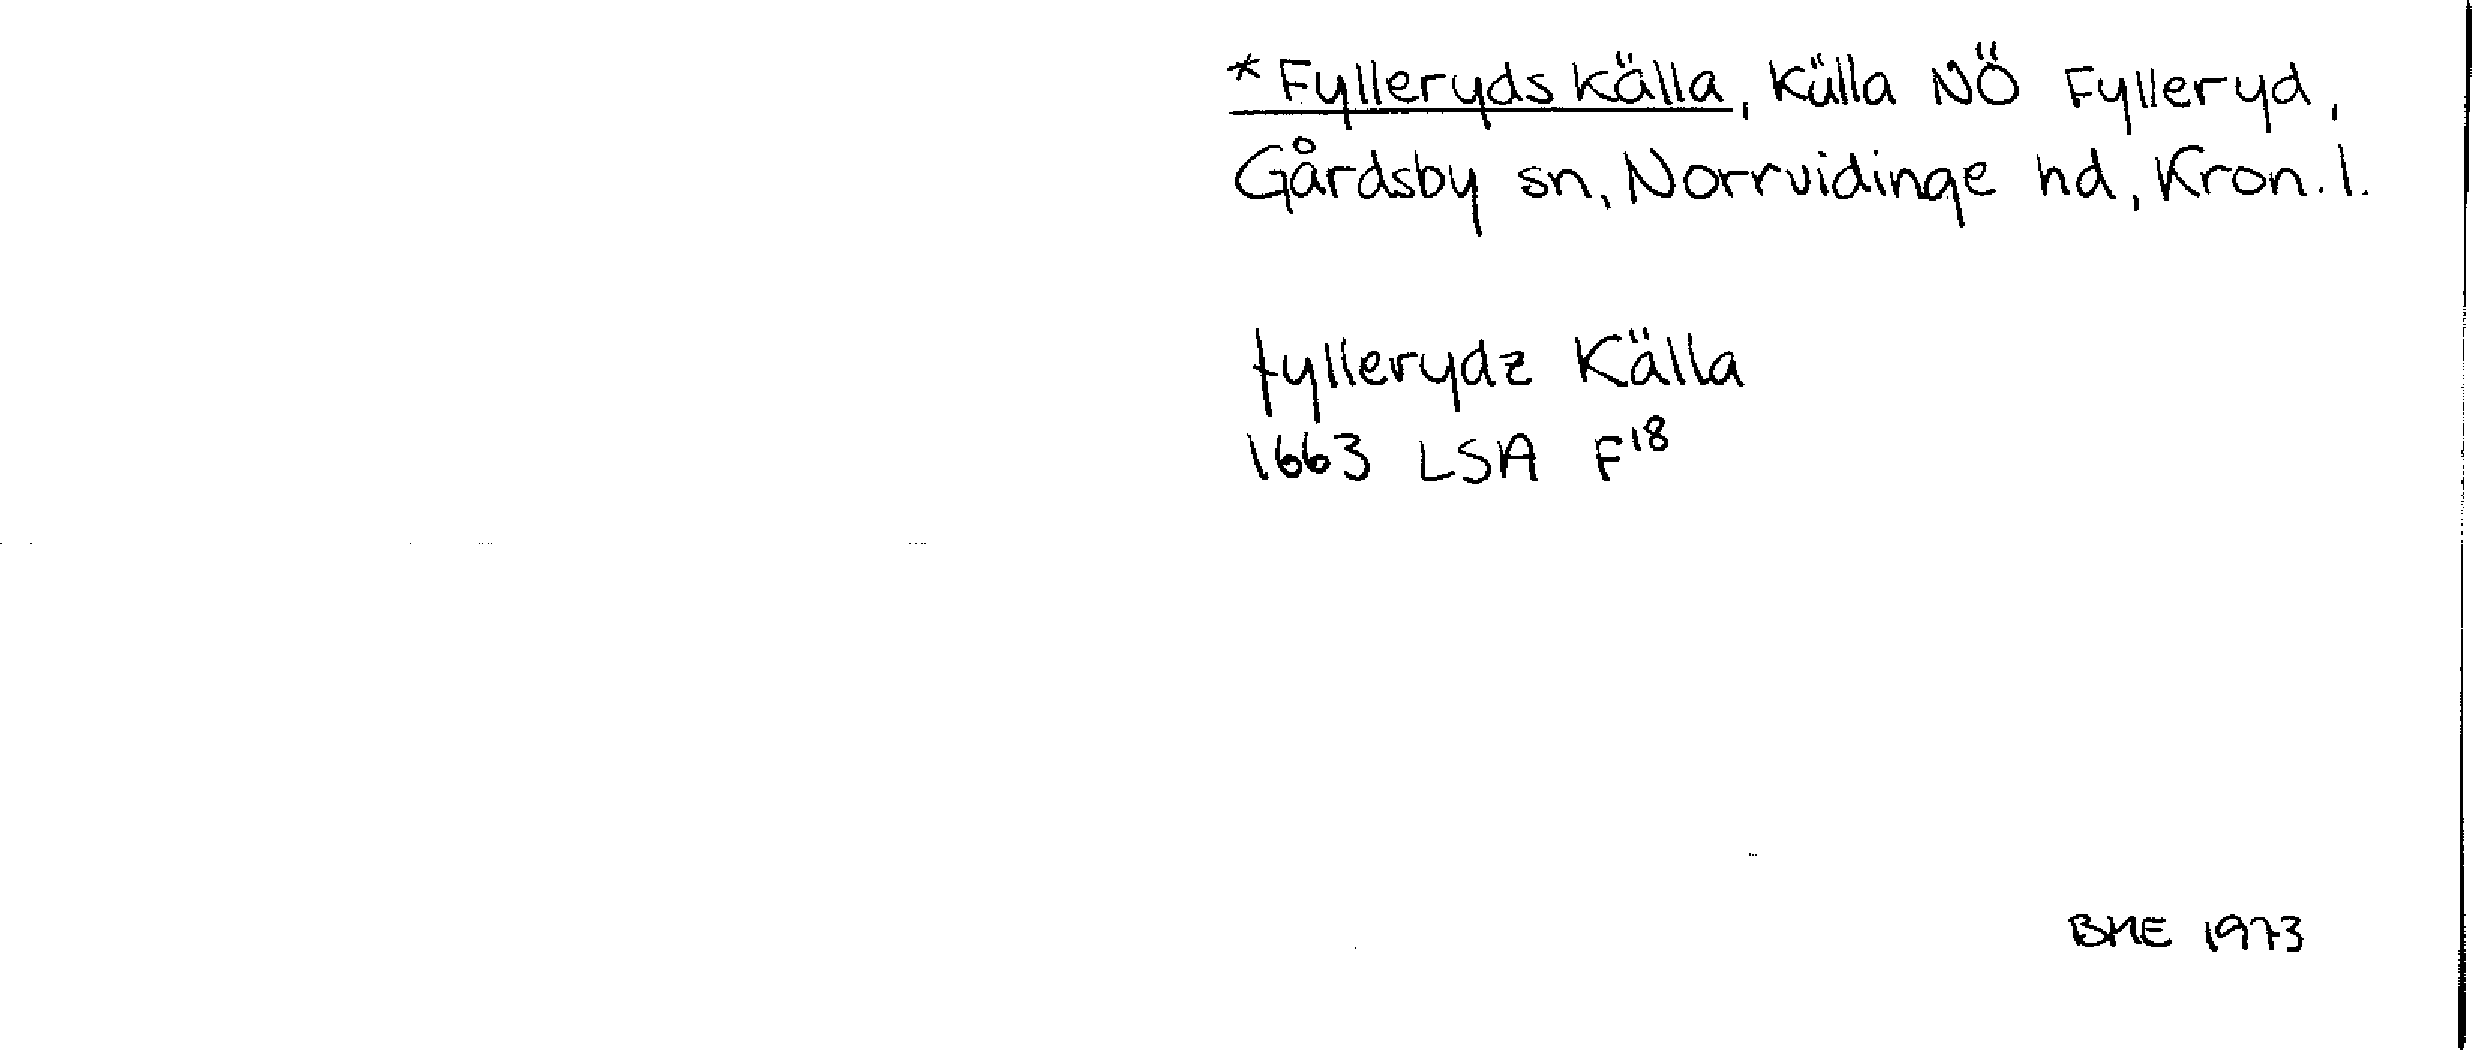 *Fylleryds källa, källa NÖ Fylleryd,
Gårdsby sn, Norrvidinge hd, Kron. l.
fyllerydz Källa
1663 LSA F18
BME 1973